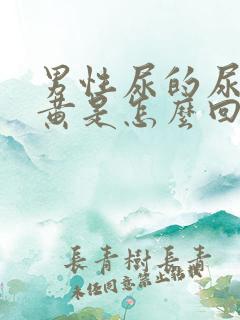 男性尿的尿
黄是怎麼回
長青樹長青
未任同意禁止帖搬